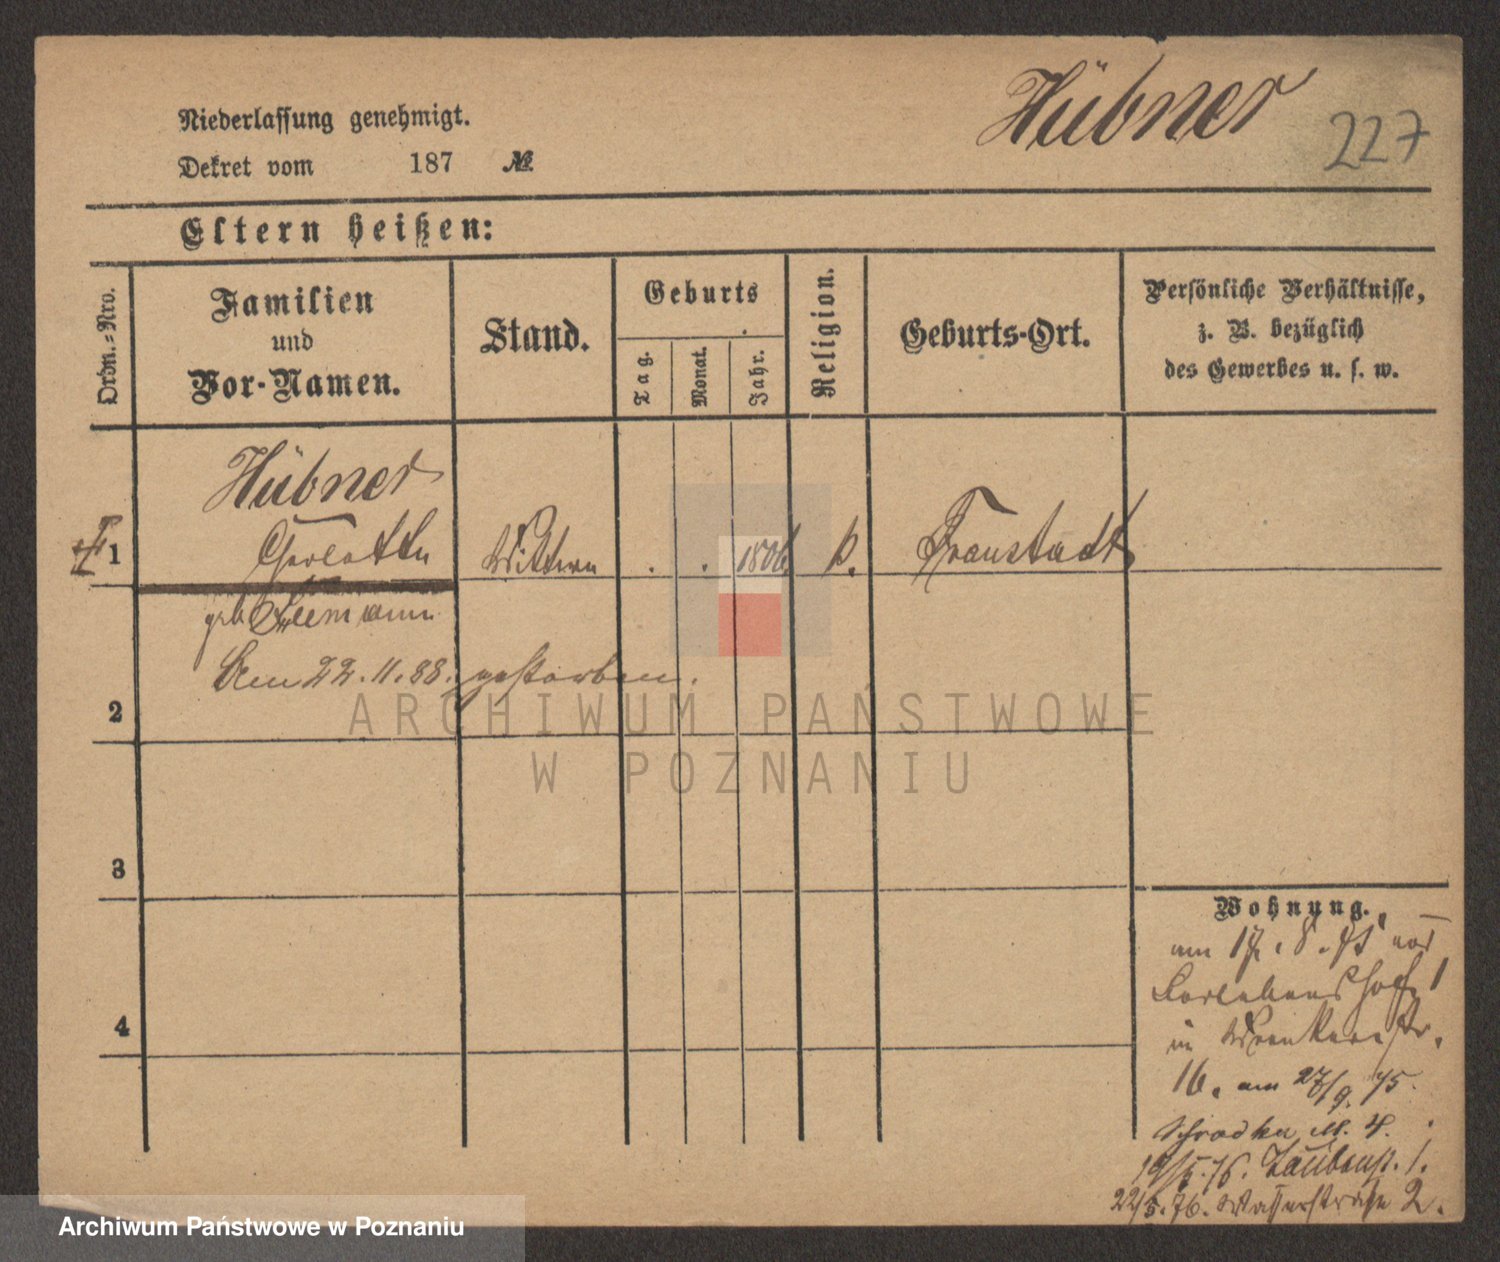 Hübner 227
Niederlassung genehmigt.
Dekret vom 187 №
Eltern heißen:
Ordn.=Nro.
Familien
und
Vor-Namen.
Stand.
Geburts
Tag.
Monat.
Jahr.
Religion.
Geburts-Ort.
Persönliche Verhältnisse,
z. B. bezüglich
des Gewerbes u. s. w.
Hübner
1 Charlotte Wittwe . . 1806 k. Fraustadt
geb.
Den 22.11.88. gestorben.
2
ARCHIWUM PAŃSTWOWE
W POZNANIU
3
Wohnung.
am 17.8.75 von
1
in Wronkerstr.
16. am 27/9. 75.
Schrodka M. 4.
19/5.76. Taubenst. 1.
22/5.76. Wasserstraße 2.
4
Archiwum Państwowe w Poznaniu